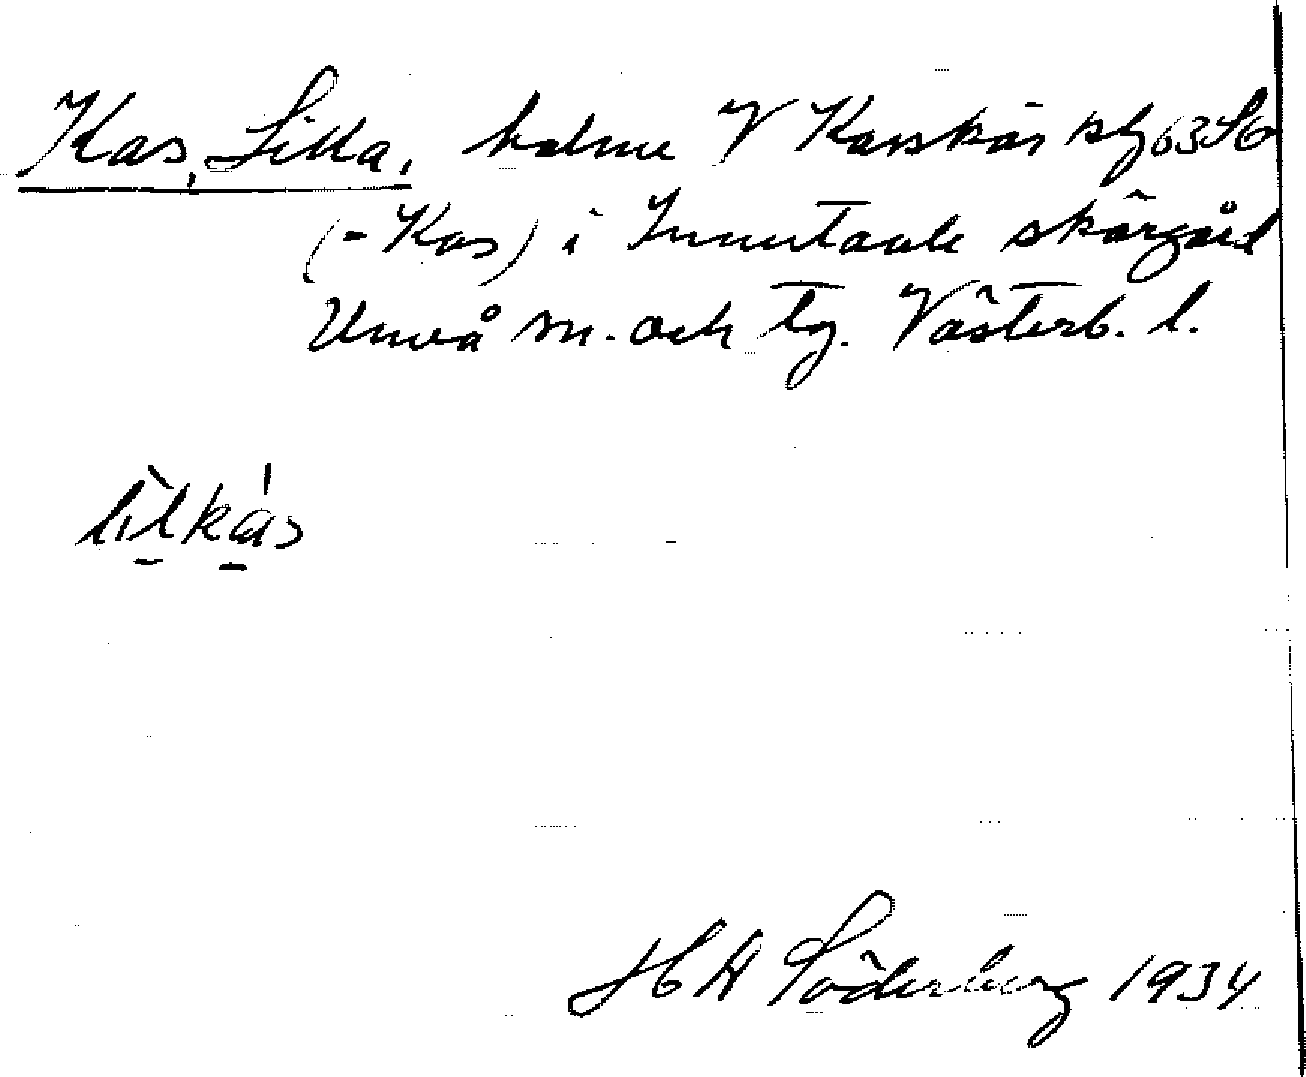 Kas, Lilla, holme V Kasskär kbl 63 S6
(-Kas) i Innertavle skärgård
Umeå sn. och tg. Västerb. l.
lìlkás
H A Söderberg 1934